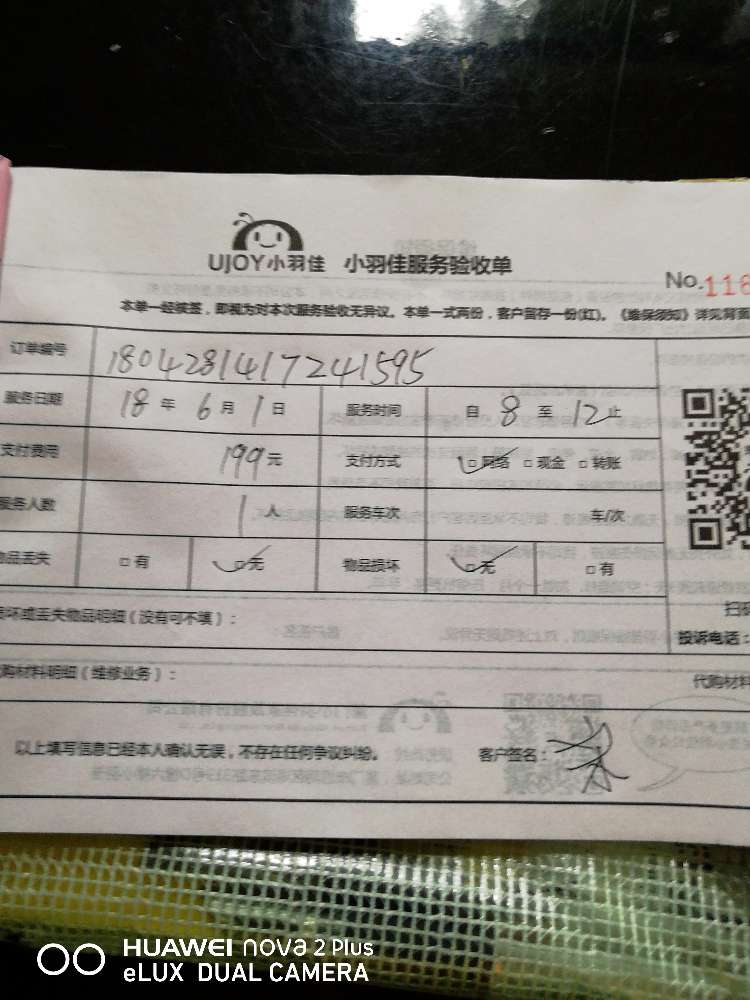 UJOY小羽佳 小羽佳服务验收单
No.116
本单一经核签，即视为对本次服务验收无异议。本单一式两份，客户留存一份(红)。《维保须知》详见背面
订单编号 1804281417241595
服务日期 18 年 6 月 1 日 服务时间 自 8 至 12 止
支付费用 199 元 支付方式 网络 现金 转账
服务人数 1 人 服务车次 车/次
物品丢失 有 无 物品损坏 无 有
坏或丢失物品明细（没有可不填）：
投诉电话：
购材料明细（维修业务）： 代购材料
以上填写信息已经本人确认无误，不存在任何争议纠纷。 客户签名：
HUAWEI nova 2 Plus
eLUX DUAL CAMERA